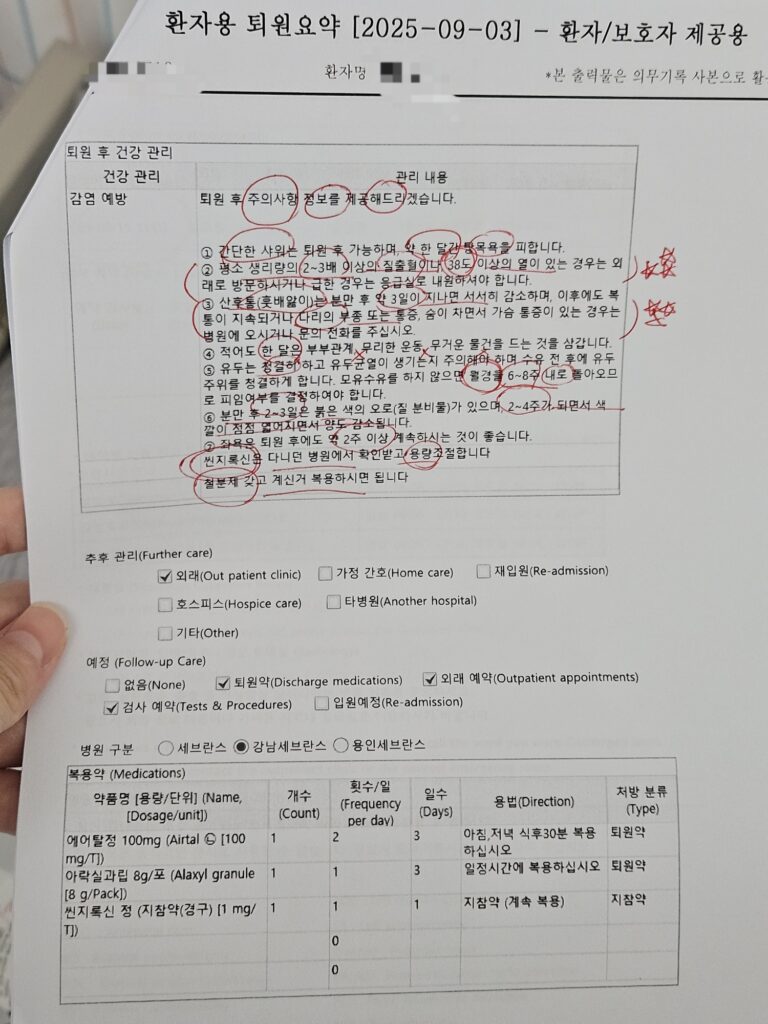 환자용 퇴원요약 [2025-09-03] - 환자/보호자 제공용
환자명
*본 출력물은 의무기록 사본으로
퇴원 후 건강 관리
건강 관리 관리 내용
감염 예방 퇴원 후 주의사항 정보를 제공해드리겠습니다.
① 간단한 샤워는 퇴원 후 가능하며, 약 한 달간 탕목욕을 피합니다.
② 평소 생리량의 2~3배 이상의 질출혈이나 38도 이상의 열이 있는 경우는 외
래로 방문하시거나 급한 경우는 응급실로 내원하셔야 합니다.
③ 산후통(훗배앓이)는 분만 후 약 3일이 지나면 서서히 감소하며, 이후에도 복
통이 지속되거나 다리의 부종 또는 통증, 숨이 차면서 가슴 통증이 있는 경우는
병원에 오시거나 문의 전화를 주십시오.
④ 적어도 한 달은 부부관계, 무리한 운동, 무거운 물건을 드는 것을 삼갑니다.
⑤ 유두는 청결히 하고 유두균열이 생기는지 주의해야 하며 수유 전 후에 유두
주위를 청결하게 합니다. 모유수유를 하지 않으면 월경을 6~8주 내로 돌아오므
로 피임여부를 결정하여야 합니다.
⑥ 분만 후 2~3일은 붉은 색의 오로(질 분비물)가 있으며, 2~4주가 되면서 색
깔이 점점 옅어지면서 양도 감소됩니다.
⑦ 좌욕은 퇴원 후에도 약 2주 이상 계속하시는 것이 좋습니다.
씬지록신은 다니던 병원에서 확인받고 용량조절합니다
철분제 갖고 계신거 복용하시면 됩니다
추후 관리(Further care)
외래(Out patient clinic) 가정 간호(Home care) 재입원(Re-admission)
호스피스(Hospice care) 타병원(Another hospital)
기타(Other)
예정 (Follow-up Care)
없음(None) 퇴원약(Discharge medications) 외래 예약(Outpatient appointments)
검사 예약(Tests & Procedures) 입원예정(Re-admission)
병원 구분 세브란스 강남세브란스 용인세브란스
복용약 (Medications)
약품명 [용량/단위] (Name, [Dosage/unit]) 개수 (Count) 횟수/일 (Frequency per day) 일수 (Days) 용법(Direction) 처방 분류 (Type)
에어탈정 100mg (Airtal ⓒ [100 mg/T]) 1 2 3 아침,저녁 식후30분 복용하십시오 퇴원약
아락실과립 8g/포 (Alaxyl granule [8 g/Pack]) 1 1 3 일정시간에 복용하십시오 퇴원약
씬지록신 정 (지참약(경구) [1 mg/T]) 1 1 1 지참약 (계속 복용) 지참약
0
0